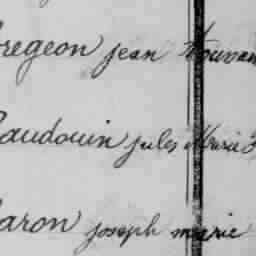 regeon jean
audouin jules Marie
aron joseph marie